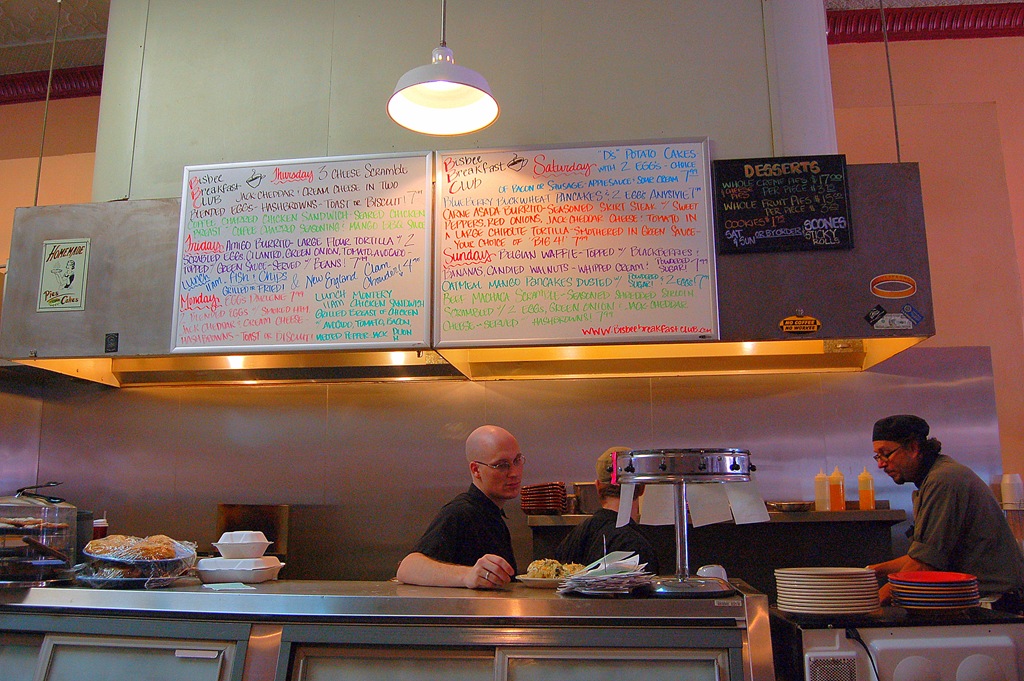 HOMEMADE
Pies
Cakes
Bisbee
Breakfast
Club
Thursday 3 CHEESE SCRAMBLE
JACK CHEDDAR & CREAM CHEESE IN TWO
BLENDED EGGS - HASHBROWNS - TOAST OR BISCUIT! 7.99
CHICKEN SANDWICH SEARED CHICKEN
BREAST
Friday AMIGO BURRITO - LARGE FLOUR TORTILLA 2
SCRABLED EGGS, CILANTRO, GREEN ONION, TOMATO, AVOCADO -
TOPPED GREEN SAUCE - SERVED BEANS! 7.99
LUNCH 11am FISH & CHIPS & NEW ENGLAND CLAM
GRILLED OR FRIED! CHOWDER! 4.00
Monday EGGS
2 BLENDED EGGS SMOKED HAM
JACK CHEDDAR & CREAM CHEESE
HASHBROWNS - TOAST OR BISCUIT!
LUNCH MONTERY
11am CHICKEN SANDWICH
GRILLED BREAST OF CHICKEN
AVOCADO, TOMATO, BACON,
MELTED PEPPER JACK
Bisbee
Breakfast
CLUB
Saturday "D's" POTATO CAKES
WITH 2 EGGS - CHOICE
OF BACON OR SAUSAGE - APPLESAUCE & SOUR CREAM 7.99
BLUEBERRY BUCKWHEAT PANCAKES & 2 EGGS ANYSTYLE! 7.99
CARNE ASADA BURRITO - SEASONED SKIRT STEAK SWEET
PEPPERS, RED ONIONS, JACK CHEDDAR CHEESE & TOMATO IN
A LARGE CHIPOTLE TORTILLA - SMOTHERED IN GREEN SAUCE -
- YOUR CHOICE OF "BIG 4!" 7.99
Sunday - BELGIAN WAFFLE - TOPPED BLACKBERRIES &
BANANAS, CANDIED WALNUTS - WHIPPED CREAM & POWDERED SUGAR!
OATMEAL MANGO PANCAKES DUSTED POWDERED SUGAR & 2 EGGS! 7.99
BEEF MACHACA SCRAMBLE - SEASONED SHREDDED SIRLOIN
SCRAMBLED 2 EGGS, GREEN ONION & JACK CHEDDAR
CHEESE - SERVED HASHBROWNS! 7.99
www.bisbeebreakfastclub.com
DESSERTS
WHOLE CREME PIES
PER PIECE
WHOLE FRUIT PIES
PER PIECE
COOKIES
SAT & SUN OR BY ORDER!
SCONES
STICKY
ROLLS
NO COFFEE
NO WORKEE